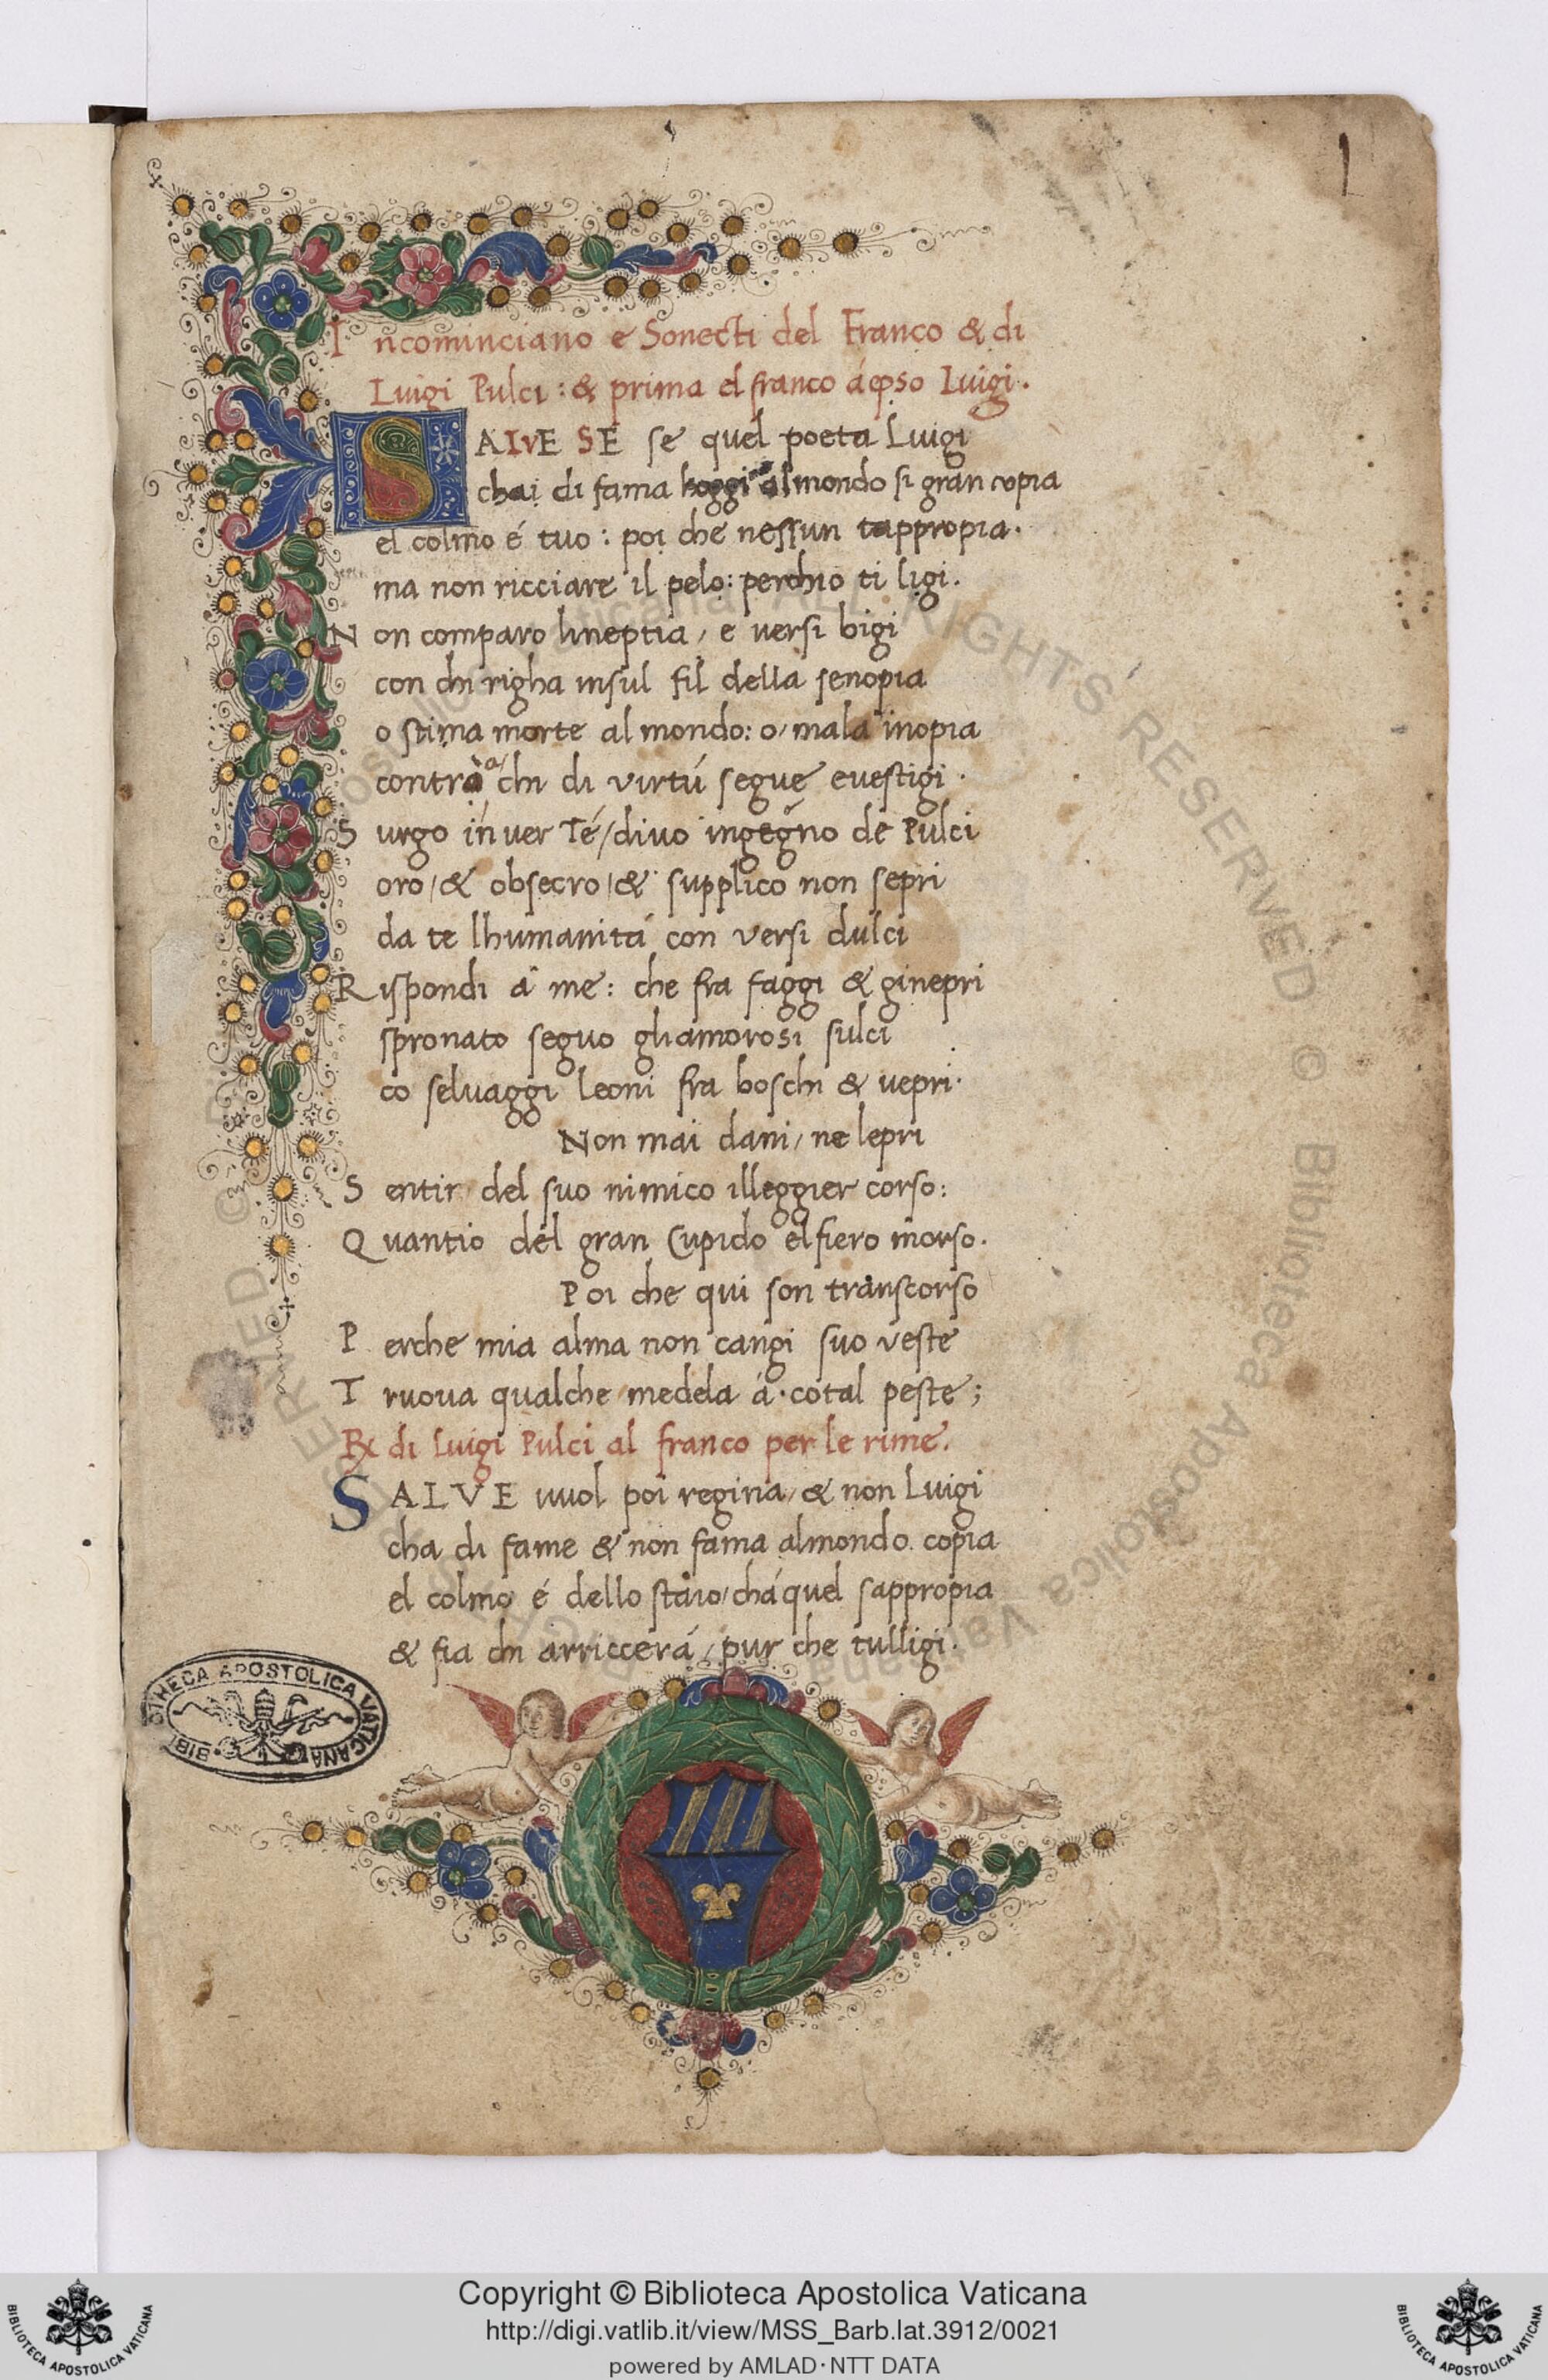 1
Incominciano e Sonecti del Franco & di
Luigi Pulci : & prima el franco á
Luigi .
SALVE SE se quel poeta Luigi
chai di fama hoggi al mondo si gran copia
el colmo é tuo : poi che nessun tappropia .
ma non ricciare il pelo : perchio ti ligi .
Non comparo lineptia / e versi bigi
con chi righa insul fil della senopia
o stima morte al mondo : o / mala inopia
contro a chi di virtú segue evestigi .
Surgo in ver Té / divo ingegno de Pulci
oro / & obsecro / & supplico non sepri
da te lhumanitá con versi dulci
Rispondi a me : che fra faggi & ginepri
spronato seguo gliamorosi sulci
co selvaggi leoni fra boschi & vepri .
Non mai dani / ne lepri
Sentir del suo nimico illeggier corso :
Quantio del gran Cupido el fiero morso .
Poi che qui son transcorso
Perche mia alma non cangi suo veste
Truova qualche medela á cotal peste ;
Rx di Luigi Pulci al franco per le rime .
SALVE vuol poi regina / & non Luigi
cha di fame & non fama almondo copia
el colmo é dello staio / chá quel sappropia
& fia chi arriccerá / pur che tulligi .
BIBLIOTHECA APOSTOLICA VATICANA
Copyright © Biblioteca Apostolica Vaticana
http://digi.vatlib.it/view/MSS_Barb.lat.3912/0021
powered by AMLAD·NTT DATA
BIBLIOTECA APOSTOLICA VATICANA
BIBLIOTECA APOSTOLICA VATICANA